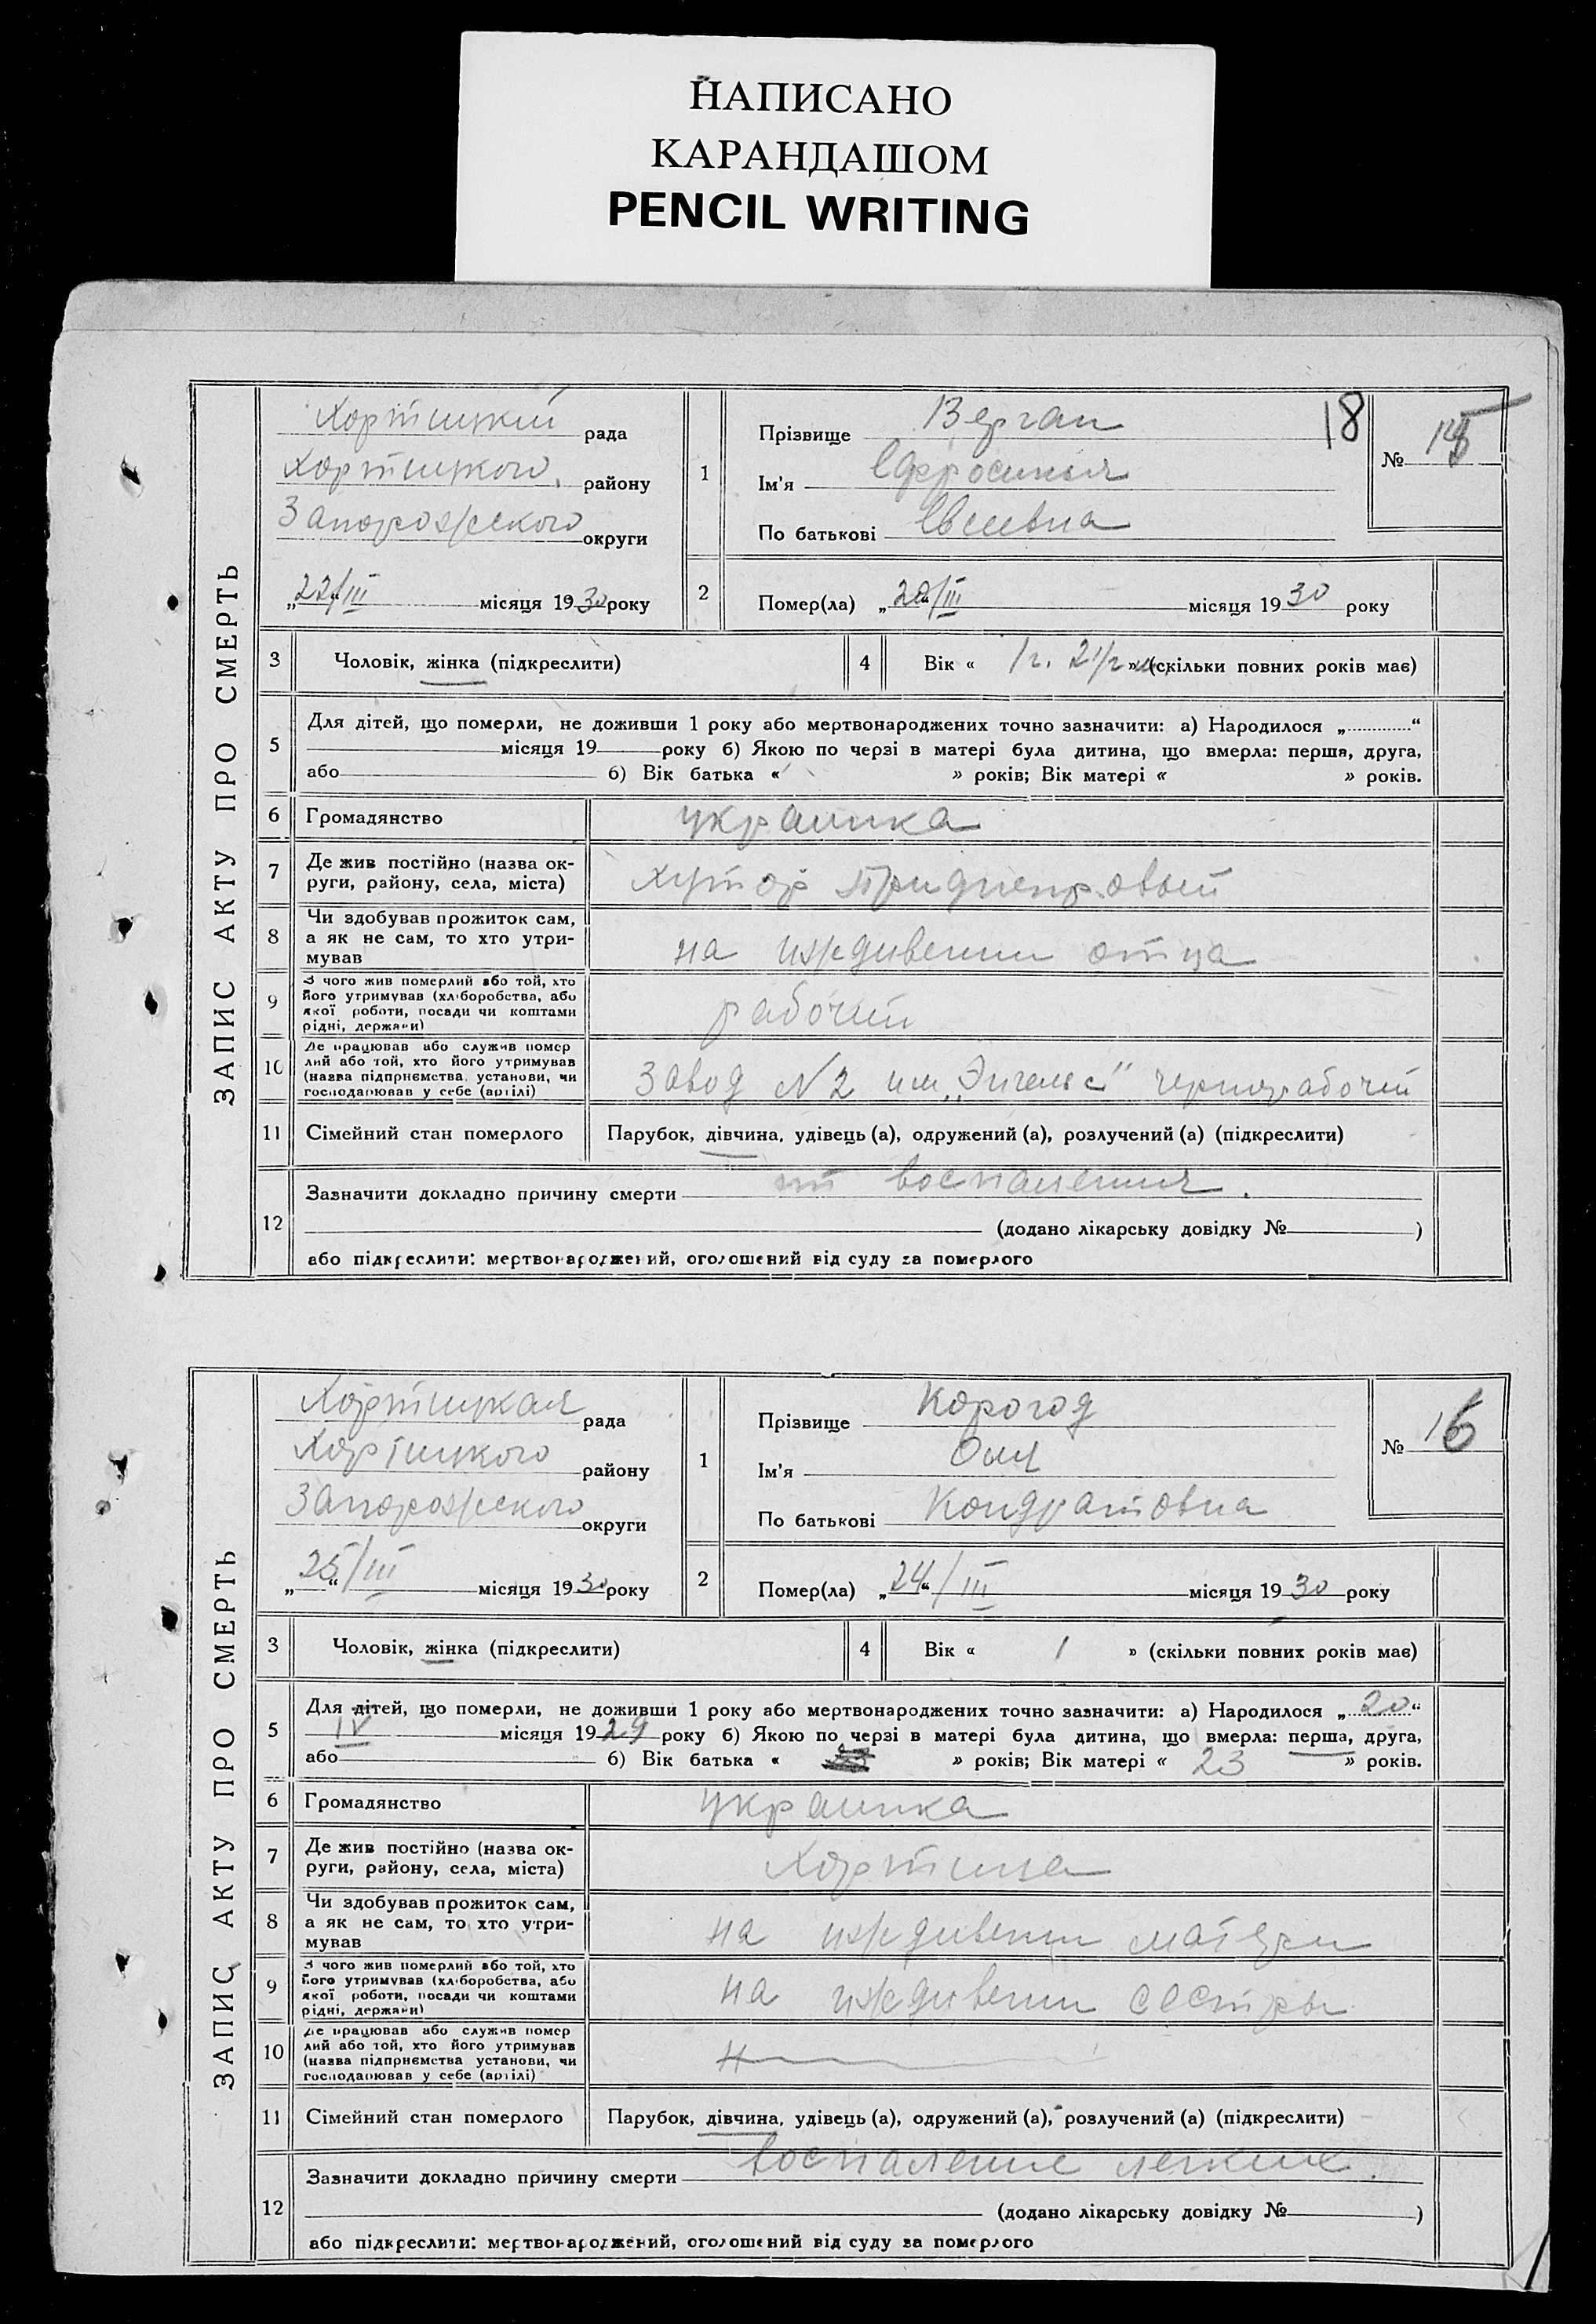 НАПИСАНО
КАРАНДАШОМ
PENCIL WRITING
ЗАПИС АКТУ ПРО СМЕРТЬ
Хортицкий рада
Хортицкого району
Запорожского округи
„22“/III місяця 1930 року
1
Прізвище Верган
Ім'я Ефросиния
По батькові Евсевна
18
№ 15
2
Помер(ла) „20“/III місяця 1930 року
3 Чоловік, жінка (підкреслити)
4 Вік « 1 г. 2 1/2 м. » (скільки повних років має)
5 Для дітей, що померли, не доживши 1 року або мертвонароджених точно зазначити: а) Народилося „ “
місяця 19 року б) Якою по черзі в матері була дитина, що вмерла: перша, друга,
або б) Вік батька « » років; Вік матері « » років.
6 Громадянство украинка
7 Де жив постійно (назва ок-
руги, району, села, міста) хутор Приднепровый
8 Чи здобував прожиток сам,
а як не сам, то хто утри-
мував на иждивении отца
9 З чого жив померлий або той, хто
його утримував (хліборобства, або
якої роботи, посади чи коштами
рідні, держави) рабочий
10 Де працював або служив помер
лий або той, хто його утримував
(назва підприємства, установи, чи
господарював у себе (артілі) Завод N 2 им „Энгельса“ чернорабочий
11 Сімейний стан померлого Парубок, дівчина, удівець (а), одружений (а), розлучений (а) (підкреслити)
12 Зазначити докладно причину смерти от воспаления.
(додано лікарську довідку № )
або підкреслити: мертвонароджений, оголошений від суду за померлого
ЗАПИС АКТУ ПРО СМЕРТЬ
Хортицкая рада
Хортицкого району
Запорожского округи
„25“/III місяця 1930 року
1
Прізвище Корогод
Ім'я Оля
По батькові Кондратовна
№ 16
2
Помер(ла) „24“/III місяця 1930 року
3 Чоловік, жінка (підкреслити)
4 Вік « 1 » (скільки повних років має)
5 Для дітей, що померли, не доживши 1 року або мертвонароджених точно зазначити: а) Народилося „20“
IV місяця 1929 року б) Якою по черзі в матері була дитина, що вмерла: перша, друга,
або б) Вік батька « » років; Вік матері « 23 » років.
6 Громадянство украинка
7 Де жив постійно (назва ок-
руги, району, села, міста) Хортица
8 Чи здобував прожиток сам,
а як не сам, то хто утри-
мував на иждивении матери
9 З чого жив померлий або той, хто
його утримував (хліборобства, або
якої роботи, посади чи коштами
рідні, держави) на иждивении сестры
10 Де працював або служив помер
лий або той, хто його утримував
(назва підприємства установи, чи
господарював у себе (артілі)
11 Сімейний стан померлого Парубок, дівчина, удівець (а), одружений (а), розлучений (а) (підкреслити)
12 Зазначити докладно причину смерти воспаление легких.
(додано лікарську довідку № )
або підкреслити: мертвонароджений, оголошений від суду за померлого